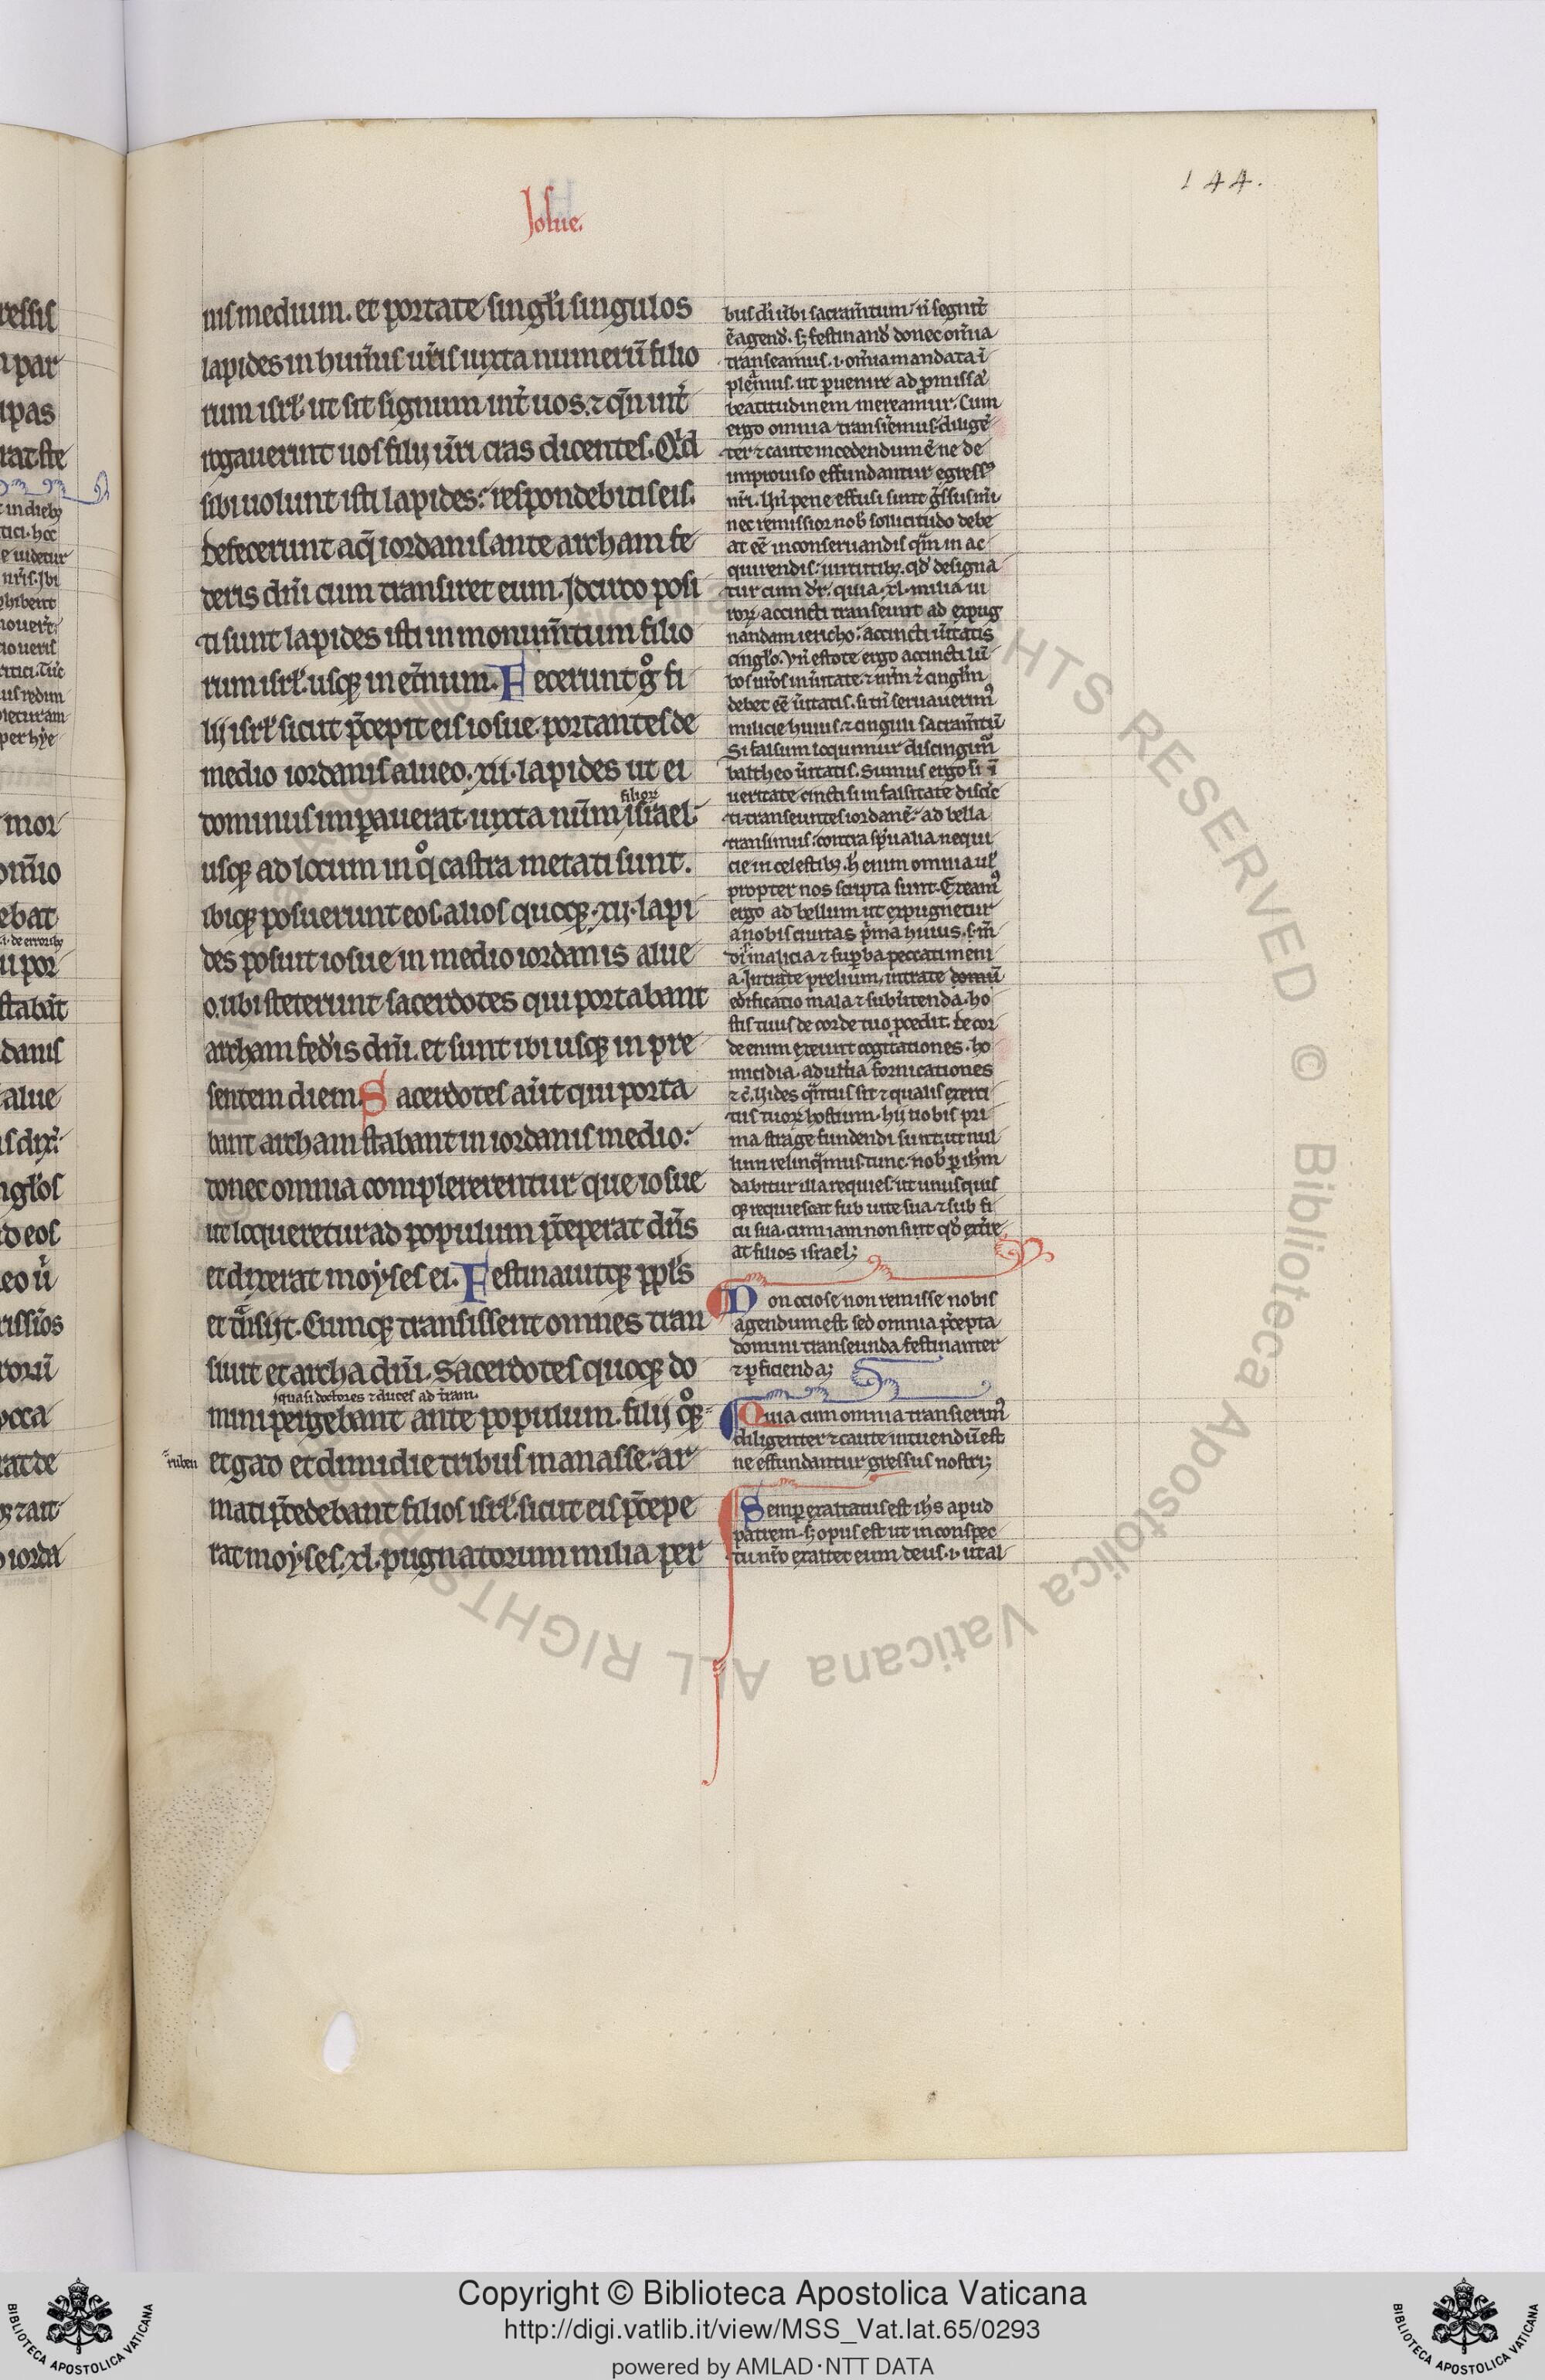 Josue.
144.
nis medium. et portate singł̓i singulos
lapides in hum̃is ur̃is iuxta numerũ filio
rum isrł. ut sit signum int̃ uos. ⁊ qñ int̃
rogauerint uos filij ur̃i cras dicentes. Qͥd
sibi uolunt isti lapides: respondebitis eis.
Defecerunt aq̃ iordanis ante archam fe
deris dñi cum transiret eum. Jdcirco posi
ti sunt lapides isti in monum̃tum filio
rum isrł. usqꝫ in et̃num. Fecerunt gͦ fi
lij isrł sicut p̃cepit eis iosue. portantes de
medio iordanis alueo .xii. lapides ut ei
filioꝝ
dominus imꝑauerat iuxta nũm israel:
usqꝫ ad locum in qͦ castra metati sunt.
ibiqꝫ posuerunt eos. alios quoqꝫ .xij. lapi
des posuit iosue in medio iordanis alue
o. ubi steterunt sacerdotes qui portabant
archam fed̓is dñi. et sunt ibi usqꝫ in pre
sentem diem. Sacerdotes aũt qui porta
bant archam stabant in iordanis medio:
donec omnia complererentur que iosue
ut loqueretur ad populum p̃ceperat dñs
et dixerat moyses ei. Festinauitqꝫ ppl̃s
et t̃nsijt. Cumqꝫ transissent omnes tran
siuit et archa dñi. Sacerdotes quoqꝫ do
.quasi doctores ⁊ duces ad t̃ram.
mini pergebant ante populum. filij qͦqꝫ
ruben
et gad et dimidie tribus manasse: ar
mati p̃cedebant filios isrł. sicut eis p̃cepe
rat moyses. xl. pugnatorum milia per
bus dñi ubi sacram̃tum. ñ segnit̃
ẽ agend̃. sꝫ festinand̃ donec om̃ia
transeamus .i. om̃ia mandata ĩ
pleamus. ut ꝑuenire ad ꝓmissã
beatitudinem mereamur. Cum
ergo omnia transierimus diligẽ
ter ⁊ caute incedendum ẽ ne de
improuiso effundantur egressꝰ
nr̃i. Hinc pene effusi sunt g̃ssus mi
nec remissior nob̃ sollicitudo debe
at eẽ in conseruandis qͣm in ac
quirendis uirtutibꝫ. qd̃ designa
tur cum dr̃. quia .xl. milia ui
roꝝ accincti transeunt ad expug
nandam iericho. accincti ũitatis
cingl̃o. Vñ estote ergo accincti lũ
bos ur̃os in ũitate ⁊ nr̃m ⁊ cingl̃m
debet eẽ ũitatis. si tñ seruauerimꝰ
milicie huius ⁊ cinguli sacram̃tũ
Si falsum loquimur discingimꝰ
baltheo ũitatis. Sumus ergo si ĩ
ueritate cincti si in falsitate discĩc
ti. transeuntes iordanẽ. ad bella
transimus. contra sp̃ualia nequi
cie in celestibꝫ. h̃ enim omnia ul̃
propter nos scripta sunt. Exeamꝰ
ergo ad bellum ut expugnetur
a nobis ciuitas p̃ma huius
malicia ⁊ suꝑba peccati meni
a. Intrate prelium. intrate domũ
edificatio mala ⁊ subũtenda. ho
stis tuus de corde tuo ꝓcedit. de cor
de enim exeunt cogitationes. ho
micidia. adult̃ia fornicationes
⁊ c̃. Uides qͣntus sit ⁊ qualis exerci
tus tuoꝝ hostium. hij uobis pri
ma strage fundendi sunt. ut nul
lum relinqͣmus. tunc nob̃ ꝑ ih̃m
dabitur illa requies. ut unusquis
qꝫ requiescat sub uite sua. ⁊ sub fi
cu sua. cum iam non sint qͥ ext̃re
at filios israel;
Non ociose non remisse nobis
agendum est sed omnia p̃cepta
domini transeunda festinanter
⁊ ꝑficienda;
Quia cum omnia transierimꝰ
diligenter ⁊ caute intuendũ est
ne effundantur gressus nostri;
Semꝑ exaltatus est ih̃s apud
patrem. sꝫ opus est ut in conspec
tu nr̃o exaltet eum deus .i. ut al
Copyright © Biblioteca Apostolica Vaticana
http://digi.vatlib.it/view/MSS_Vat.lat.65/0293
powered by AMLAD·NTT DATA
BIBLIOTECA APOSTOLICA VATICANA
BIBLIOTECA APOSTOLICA VATICANA
© Biblioteca Apostolica Vaticana ALL RIGHTS RESERVED